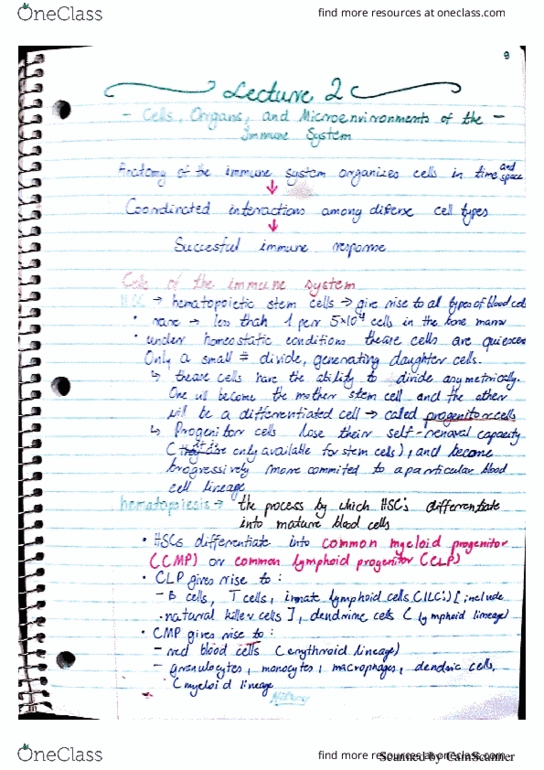 OneClass
find more resources at oneclass.com
9
Lecture 2
- Cells, Organs, and Microenvironments of the -
Immune System
Anatomy of the immune system organizes cells in time and space
Coordinated interactions among diferse cell types
Succesful immune response
Cells of the immune system
HSC → hematopoietic stem cells → give rise to all types of blood cells
• rare → less than 1 per 5×10⁴ cells in the bone marrow
• under homeostatic conditions thease cells are quiescen
Only a small # divide, generating daughter cells.
↳ thease cells have the ability to divide asymetrically.
One will become the mother stem cell and the other
will be a differentiated cell → called progenitor cells
↳ Progenitor cells lose their self-renewal capacity
( only available for stem cells), and become
progressively more commited to a particular blood
cell lineage
hematopoiesis → the process by which HSC's differentiate
into mature blood cells
• HSCs differentiate into common myeloid progenitor
(CMP) or common lymphoid progenitor (CLP)
• CLP gives rise to:
- B cells, T cells, innate lymphoid cells (ILC:) [include
natural killer cells], dendrine cells (lymphoid lineage)
• CMP gives rise to:
- red blood cells (erythroid lineage)
- granulocytes, monocytes, macrophages, dendric cells,
(myeloid lineage
OneClass
find more resources at oneclass.com
Scanned by CamScanner